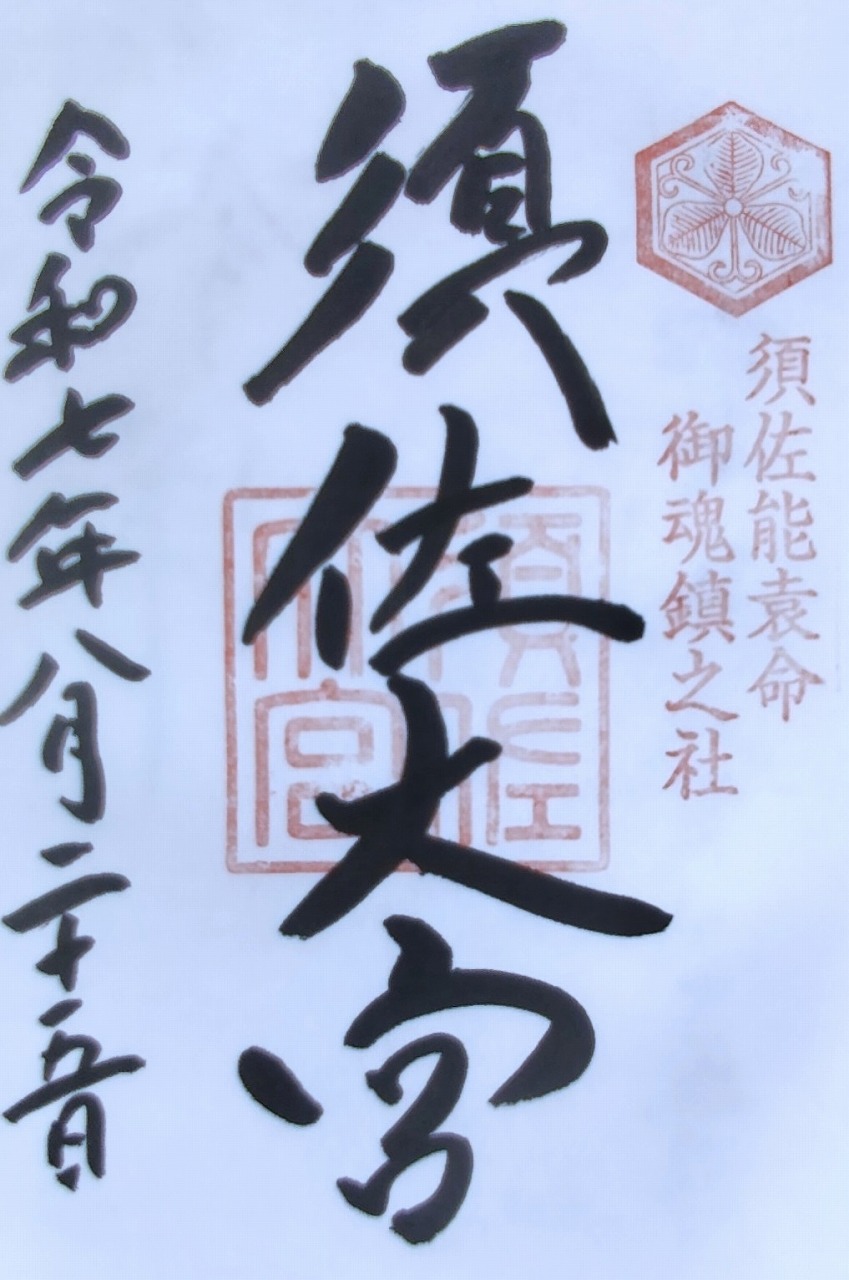 須佐能袁命
御魂鎮之社
須佐大宮
須佐
大宮
令和七年八月二十五日